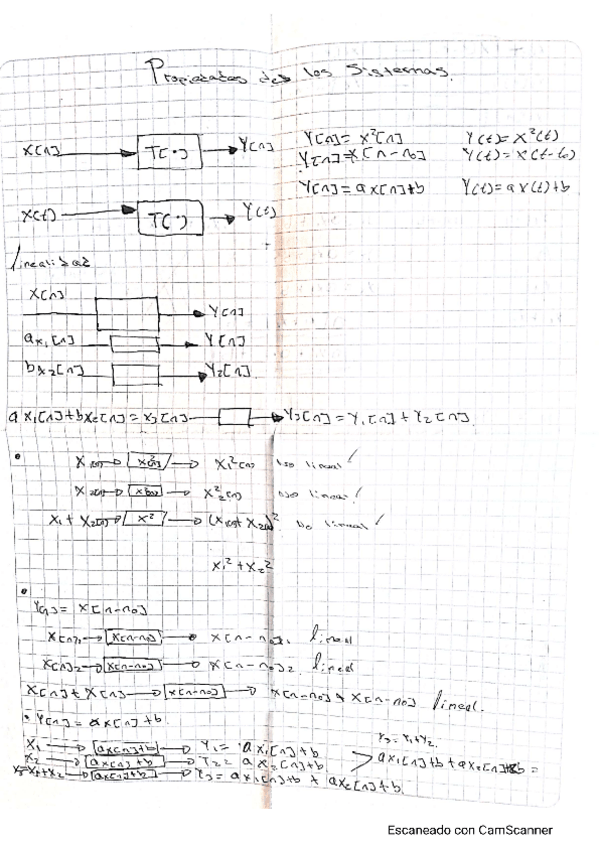 Propiedades de los Sistemas.
X[n] T[·] Y[n] Y[n] = X²[n] Y(t) = X²(t)
Y[n] = X[n-n₀] Y(t) = X(t-t₀)
Y[n] = aX[n]+b Y(t) = aX(t)+b
X(t) T(·) Y(t)
linealidad
X[n] Y[n]
ax₁[n] Y[n]
bx₂[n] Y₂[n]
a x₁[n]+bx₂[n] = x₃[n] Y₃[n] = Y₁[n] + Y₂[n]
X₁[n] X²[n] X₁²[n] no lineal!
X₂[n] X₂²[n] No lineal!
X₁ + X₂[n] X² No lineal!
X₁² + X₂²
Y[n] = X[n-n₀]
X[n]₁ X[n-n₀] X[n-n₀]₁ lineal
X[n]₂ X[n-n₀] X[n-n₀]₂ lineal
X[n] + X[n] X[n-n₀] X[n-n₀] + X[n-n₀] lineal.
Y[n] = ax[n]+b.
Y₃ = Y₁+Y₂
X₁ ax[n]+b Y₁ = ax₁[n]+b
X₂ ax[n]+b Y₂ = ax₂[n]+b
X₃=X₁+X₂ ax[n]+b Y₃ = ax₁[n]+b + ax₂[n]+b
Escaneado con CamScanner